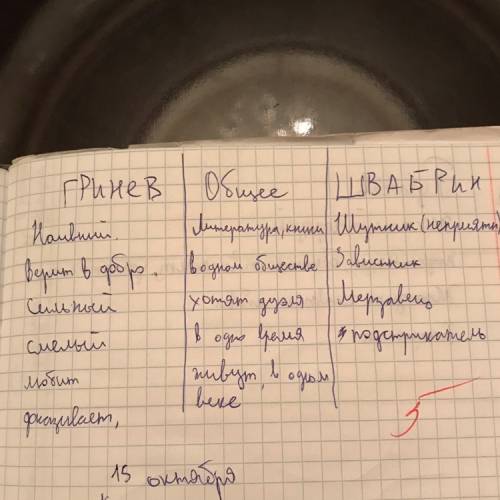 ГРИНЕВ Общее ШВАБРИН
Наивний. Литература, книги Шутник (неприятн
Верит в добро. в одном обществе Завистник
Сильный хотят дуэля Мерзавец
смелый в одно время подстрикатель
любит живут, в одном
веке
5
15 октября